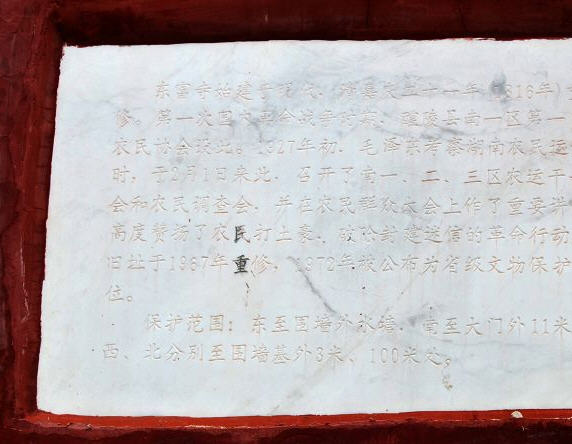 东富寺始建于 代，清嘉庆二十一年（1816年）重
修。第一次国内革命战争时期，醴陵县南一区第一
农民协会设此。1927年初，毛泽东考察湖南农民运
时，于2月1日来此，召开了南一、二、三区农运干
会和农民调查会，并在农民群众大会上作了重要讲
高度赞扬了农民打土豪、破除封建迷信的革命行动
旧址于1967年重修，1972年被公布为省级文物保护
位。
保护范围：东至围墙外水塘，南至大门外11米
西、北分别至围墙基外3米、100米处。